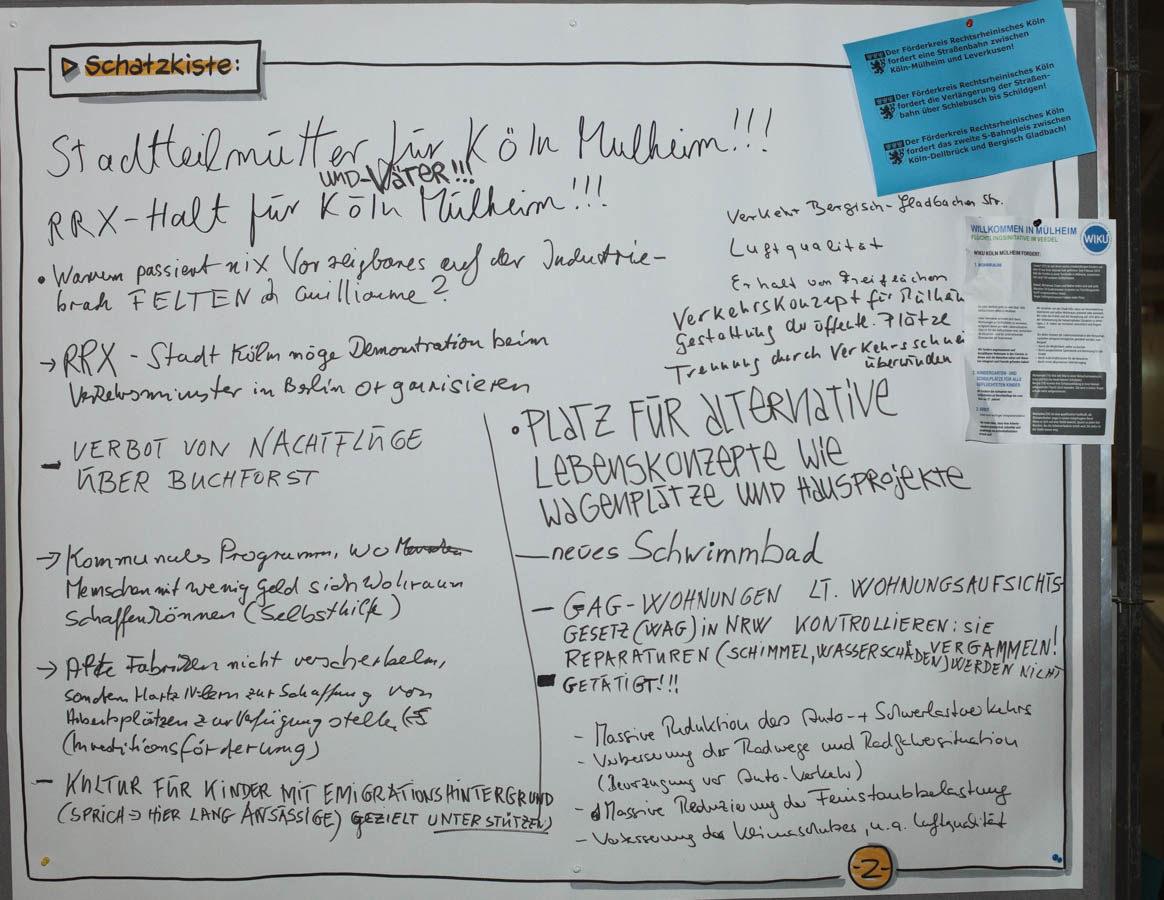 Schatzkiste:
Stadtteilmütter für Köln Mülheim!!!
UND-VÄTER!!!
RRX-Halt für Köln Mülheim!!!
• Warum passiert nix Vorzeigbares auf der Industrie-
brach FELTEN & Guilliaume?
→ RRX - Stadt Köln möge Demonstration beim
Verkehrsminister in Berlin organisieren
- VERBOT VON NACHTFLÜGE
ÜBER BUCHFORST
→ Kommunales Programm, wo
Menschen mit wenig Geld sich Wohraum
schaffen können (Selbsthilfe)
→ Alte Fabriken nicht verscherbeln,
sondern Hartz IV-lern zur Schaffung von
Arbeitsplätzen zur Verfügung stellen
(Investitionsförderung)
- KULTUR FÜR KINDER MIT EMIGRATIONSHINTERGRUND
(SPRICH → HIER LANG ANSÄSSIGE) GEZIELT UNTERSTÜTZEN)
Der Förderkreis Rechtsrheinisches Köln
fordert eine Straßenbahn zwischen
Köln-Mülheim und Leverkusen!
Der Förderkreis Rechtsrheinisches Köln
fordert die Verlängerung der Straßen-
bahn über Schlebusch bis Schildgen!
Der Förderkreis Rechtsrheinisches Köln
fordert das zweite S-Bahngleis zwischen
Köln-Dellbrück und Bergisch Gladbach!
Verkehr Bergisch-Gladbacher Str.
Luftqualität
Erhalt von Freiflächen
Verkehrskonzept für Mülheim
Gestaltung der öffentl. Plätze
Trennung durch Verkehrsschnei
überwinden
WILLKOMMEN IN MÜLHEIM
FLÜCHTLINGSINITIATIVE IM VEEDEL
WIKU
WIKU KÖLN MÜLHEIM FORDERT:
1. WOHNRAUM
2. KINDERGARTEN- UND
SCHULPLÄTZE FÜR ALLE
GEFLÜCHTETEN KINDER
• PLATZ FÜR ALTERNATIVE
LEBENSKONZEPTE WIE
WAGENPLÄTZE UND HAUSPROJEKTE
- neues Schwimmbad
- GAG-WOHNUNGEN LT. WOHNUNGSAUFSICHTS
GESETZ (WAG) IN NRW KONTROLLIEREN: SIE
VERGAMMELN!
REPARATUREN (SCHIMMEL, WASSERSCHÄDEN) WERDEN NICHT
GETÄTIGT!!!
- Massive Reduktion des Auto- + Schwerlastverkehrs
- Verbesserung der Radwege und Radfahrsituation
(Bevorzugung vor Auto-Verkehr)
- Massive Reduzierung der Feinstaubbelastung
- Verbesserung des Klimaschutzes, u.a. Luftqualität
-2-